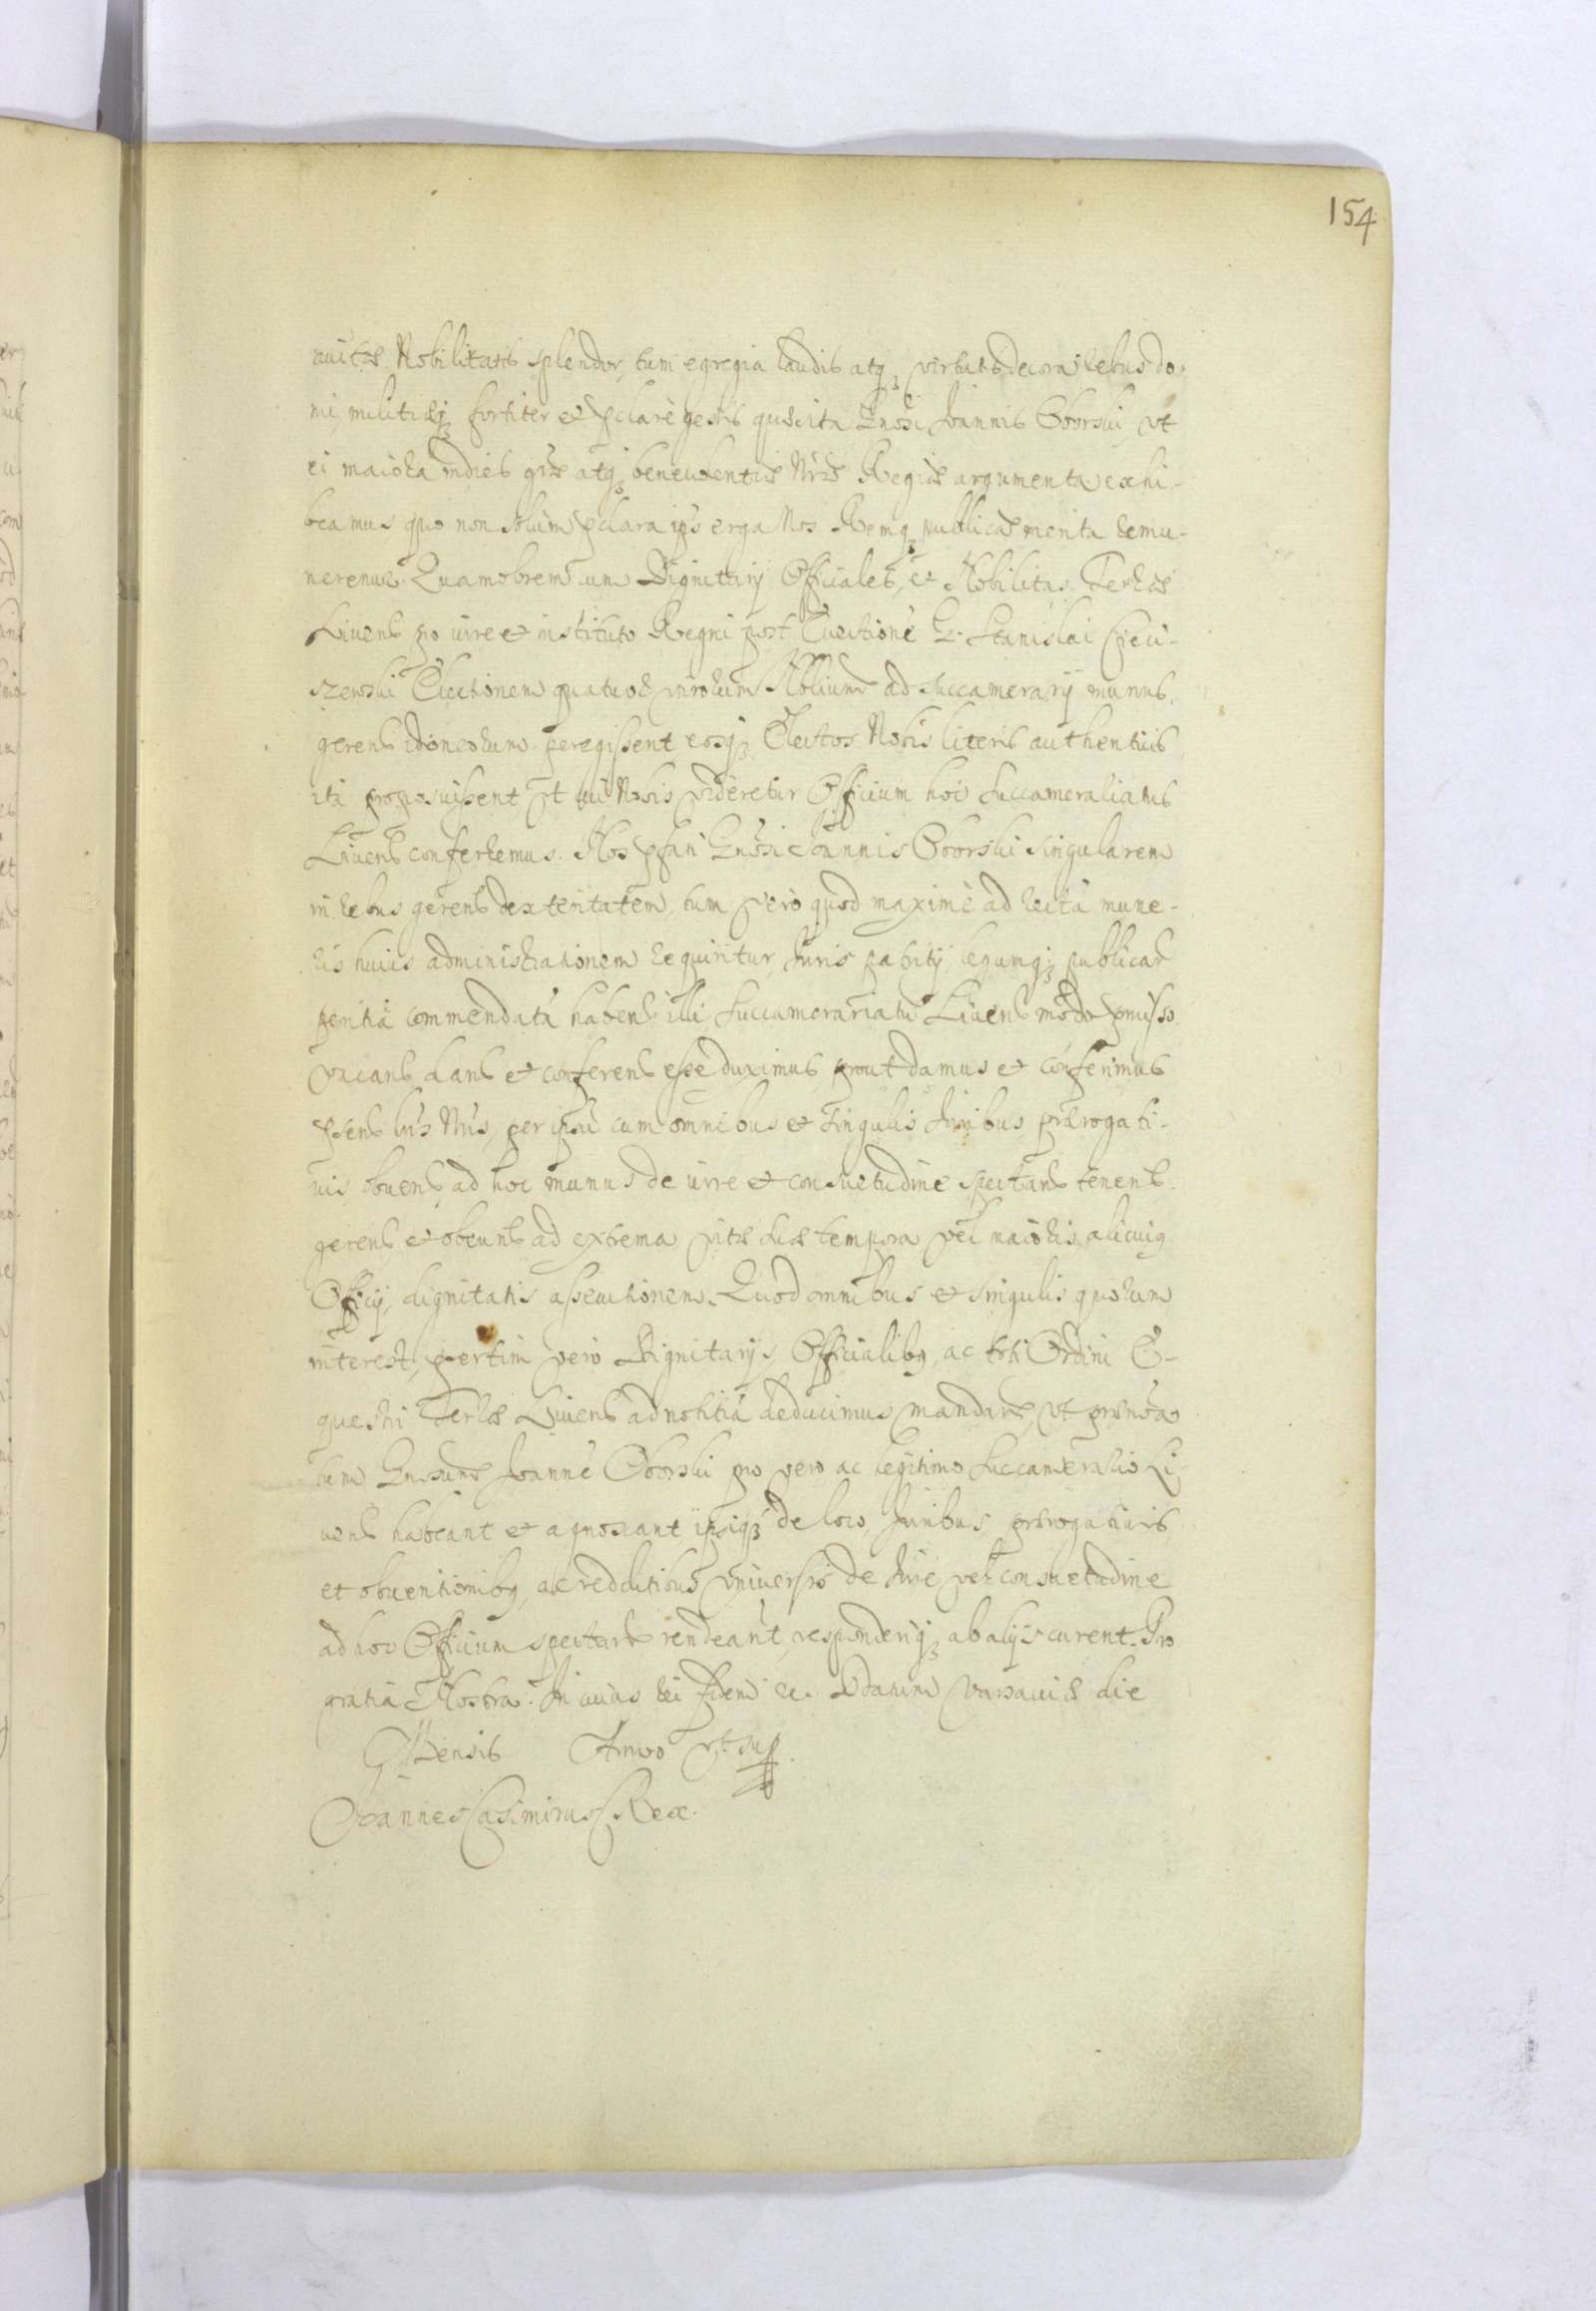 154
avitæ Nobilitatis splendor, tum egregia laudis atq̨ virtutis decora rebus do-
mi, militiæq̨ fortiter et pclarè gestis quæsita Gnosi Joannis Oborski, vt
ei maiora indies grãæ atq̨ beneuolentiæ Nrãæ Regiæ argumenta exhi-
beamus quo non solùm pclara ips erga Nos Remq̨ publicã merita remu-
neremur. Quamobrem cum Dignitarij Officiales, et Nobilitas Terræ
Liuens pro iure et instituto Regni post euectionẽ G. Stanislai
Electionem quatuor virorum Nobilium ad Succamerarij munus
gerend idoneorum peregissent eosq̨ Electos Nobis literis authenticis
ita proposuissent, vt cui Nobis videretur Officium hoc Succamerariatus
Liuens conferremus. Nos pfati Gnosi Joannis Oborski singularem
in rebus gerend dexteritatem, tum verò quod maximè ad rectã mune-
ris huius administrationem requiritur, Juris patrij legumq̨ publicar
peritiã commendatã habens illi Succamerariatũ Liuens modo pmisso
vacans dand et conferend esse duximus prout damus et conferimus
psens lris Nris, per ipsũ cum omnibus et singulis Juribus, prærogati-
uis obuent ad hoc munus de iure et consuetudine spectant tenend
gerend et obeund ad extrema vitæ suæ tempora vel maioris alicuiq
Officij, dignitatis assecutionem. Quod omnibus et singulis quorum
interest, psertim vero Dignitarijs, Officialibq, ac toti Ordini E-
questri Terræ Liuens ad notitiã deducimus, mandant, vt prænoĩa
tum Gnosum Joannẽ Oborski pro vero ac legitimo Succamerario Li-
uens habeant et agnoscant, ipsiq̨ de loco, Juribus, prærogatiuis
et obuentionibq, ac redditibus vniuersis de Jure vel consuetudine
ad hoc Officium spectant rendeant, responderiq̨ ab alijs curent. Pro
gratia Nostra. In cuius rei fidem &c. Datum Varsauiæ die
Mensis Anno vt sup.
Joannes Casimirus Rex.